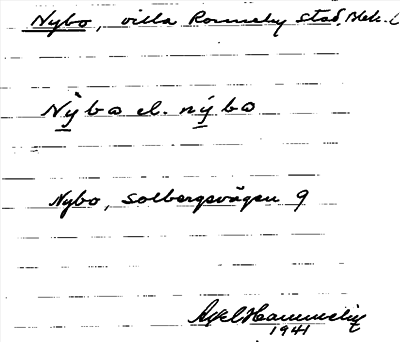 Nybo, villa Ronneby stad, Blek. l
Nỳbo el. nýbo
Nybo, Solbergsvägen 9
Axel Hammelig
1941